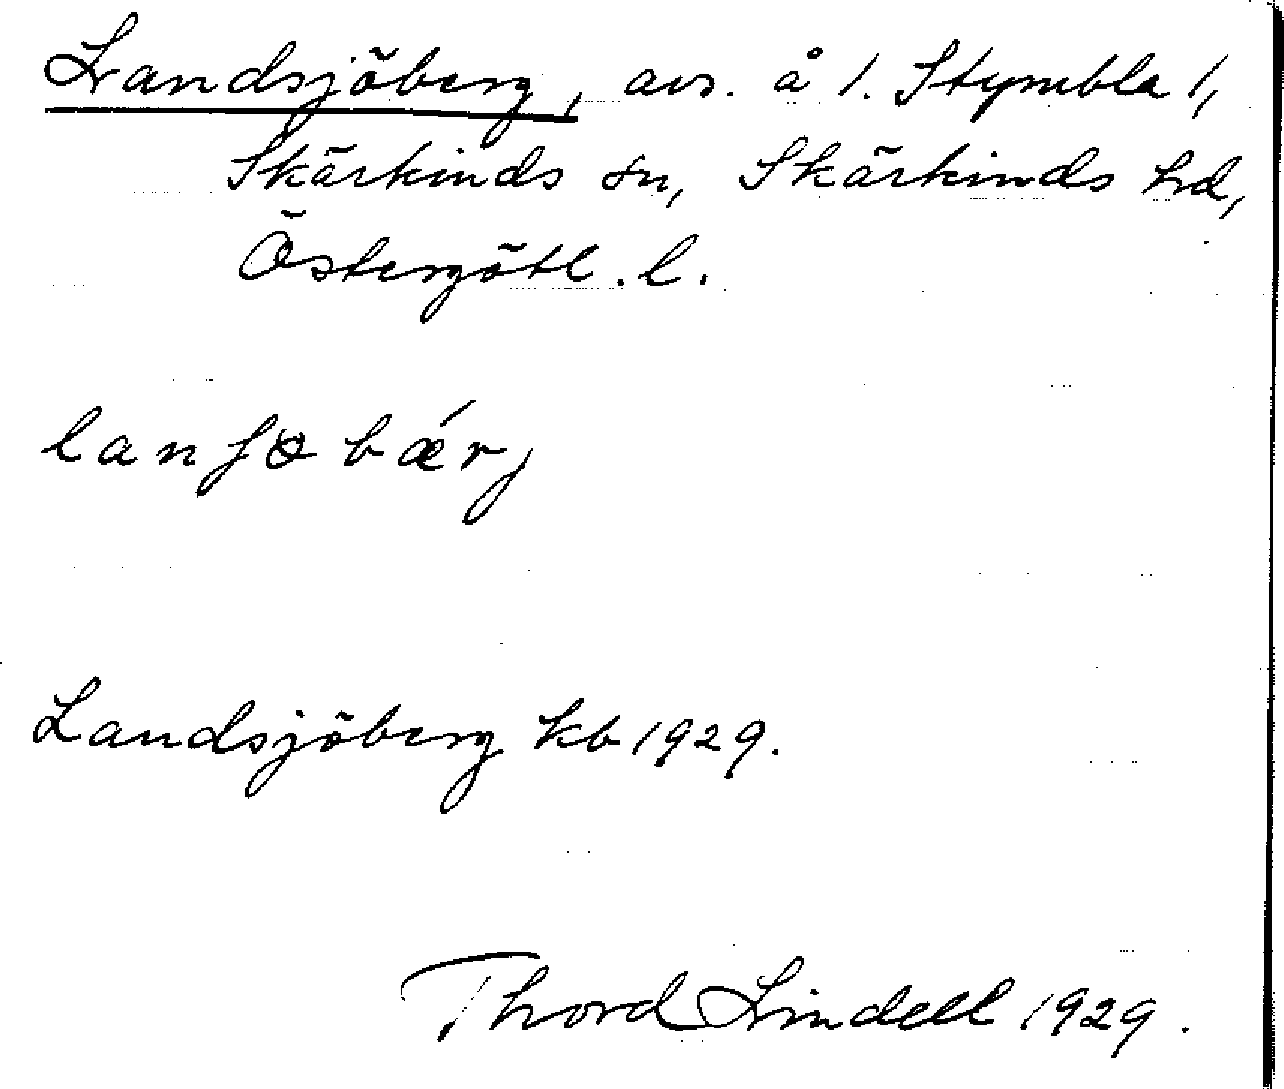 Landsjöberg, avs. å 1. Stymbla 1,
Skärkinds sn, Skärkinds hd,
Östergötl. l.
lanʃɵbǽrj
Landsjöberg kb 1929.
Thord Lindell 1929.